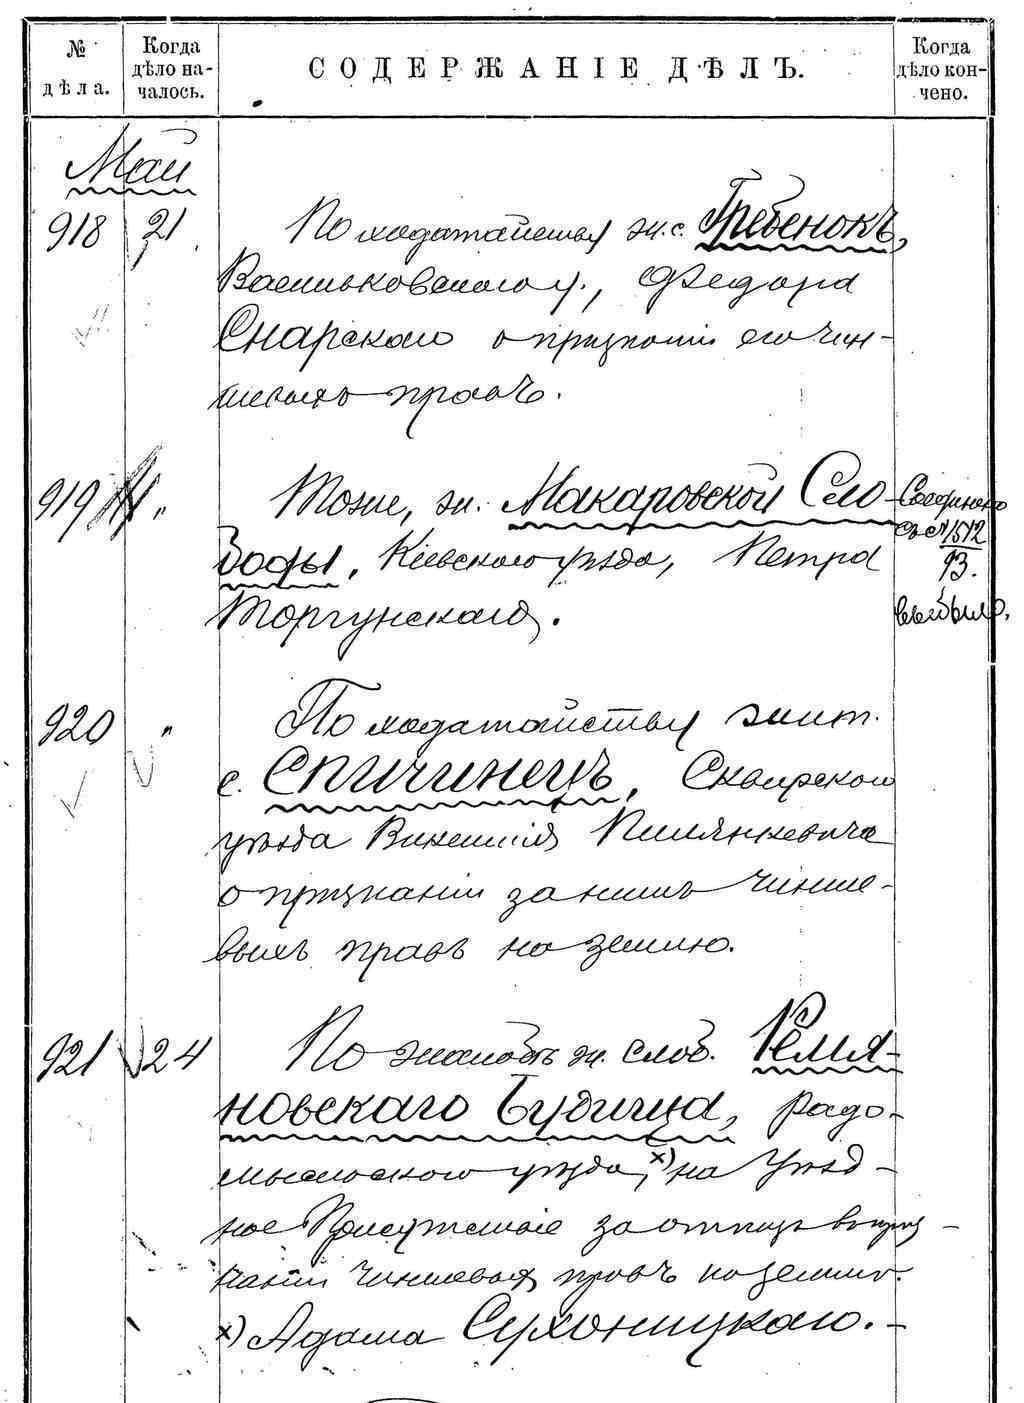 № дѣла.
Когда дѣло началось.
СОДЕРЖАНІЕ ДѢЛЪ.
Когда дѣло кончено.
Май
918 21 По ходатайству ж. с. Гребенокъ,
Васильковскаго у., Федора
Снарскаго о признаніи его чин-
шевыхъ правъ.
919 „ Тоже, ж. Макаровской Сло-
боды, Кіевскаго уѣзда, Петра
Торгунскаго.
Соединено
съ № 1512
93.
выбыло.
920 „ По ходатайству жит.
с. Спичинецъ, Сквирскаго
уѣзда Викентія
о признаніи за нимъ чинше-
выхъ правъ на землю.
921 24 По жалобѣ ж. слоб.
новскаго Будища, Радо-
мысльскаго уѣзда, х) на Уѣзд-
ное Присутствіе за отказъ въ приз-
наніи чиншевыхъ правъ на землю.
х) Адама Сухоницкаго.-